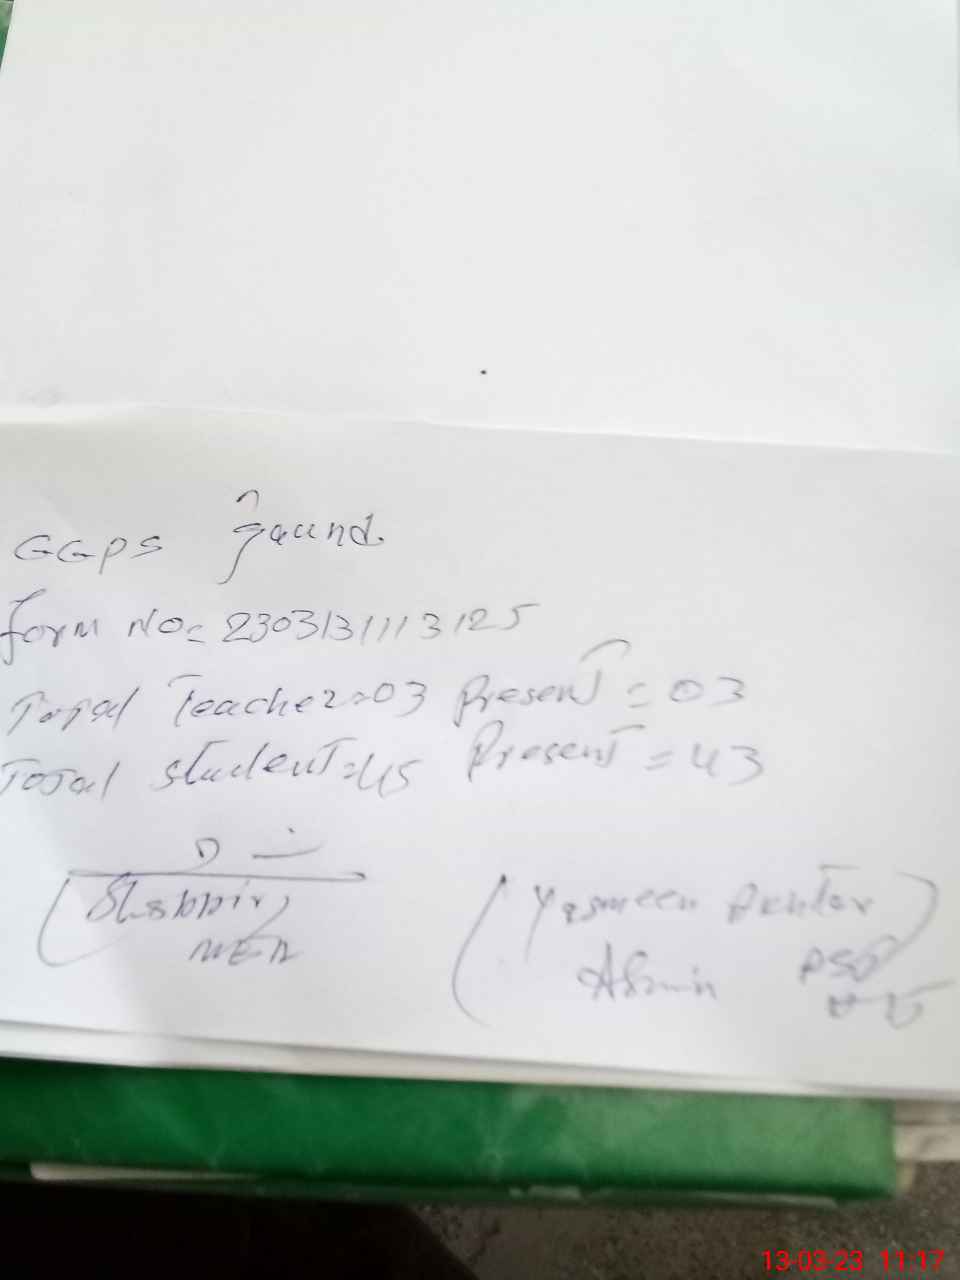 GGPS Jaund
form No = 2303131113125
Total Teacher = 03 Present = 03
Total student = 45 Present = 43
(Shabbir)
(Yasmeen Akhtar
Admin
13-03-23 11:17